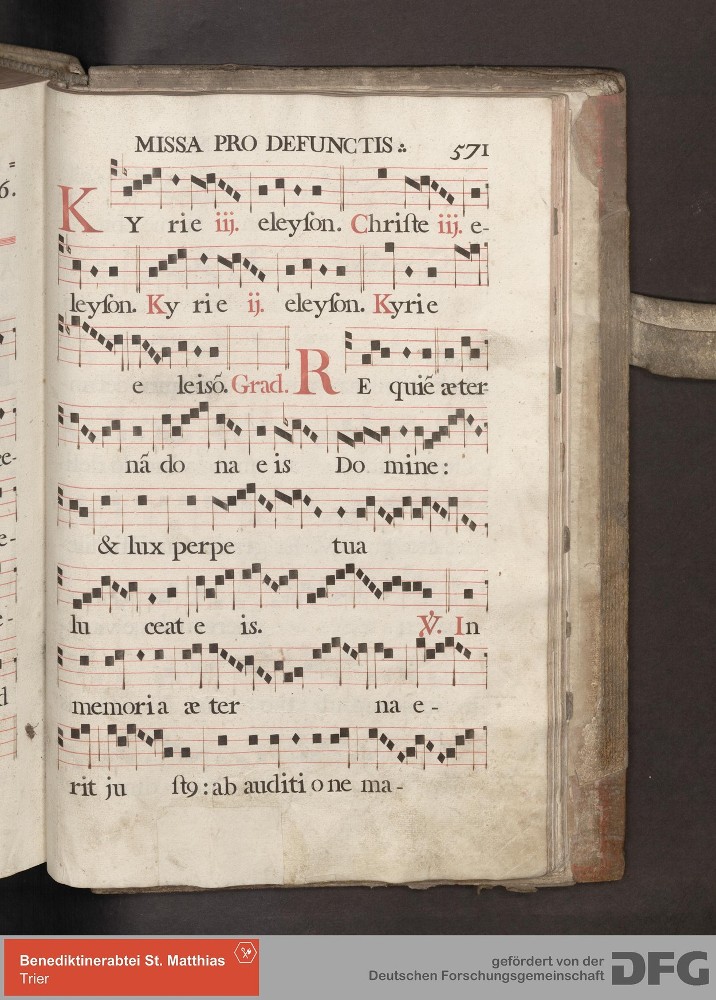 MISSA PRO DEFUNCTIS ∴ 571
KY rie iij. eleyſon. Chriſte iij. e-
leyſon. Ky rie ij. eleyſon. Kyrie
e leisõ. Grad. RE quiẽ æter-
nã do na eis Do mine:
& lux perpe tua
lu ceat e is. ℣. In
memoria æ ter na e-
rit ju ſtꝰ: ab auditione ma-
6.
Benediktinerabtei St. Matthias
Trier
gefördert von der
Deutschen Forschungsgemeinschaft DFG